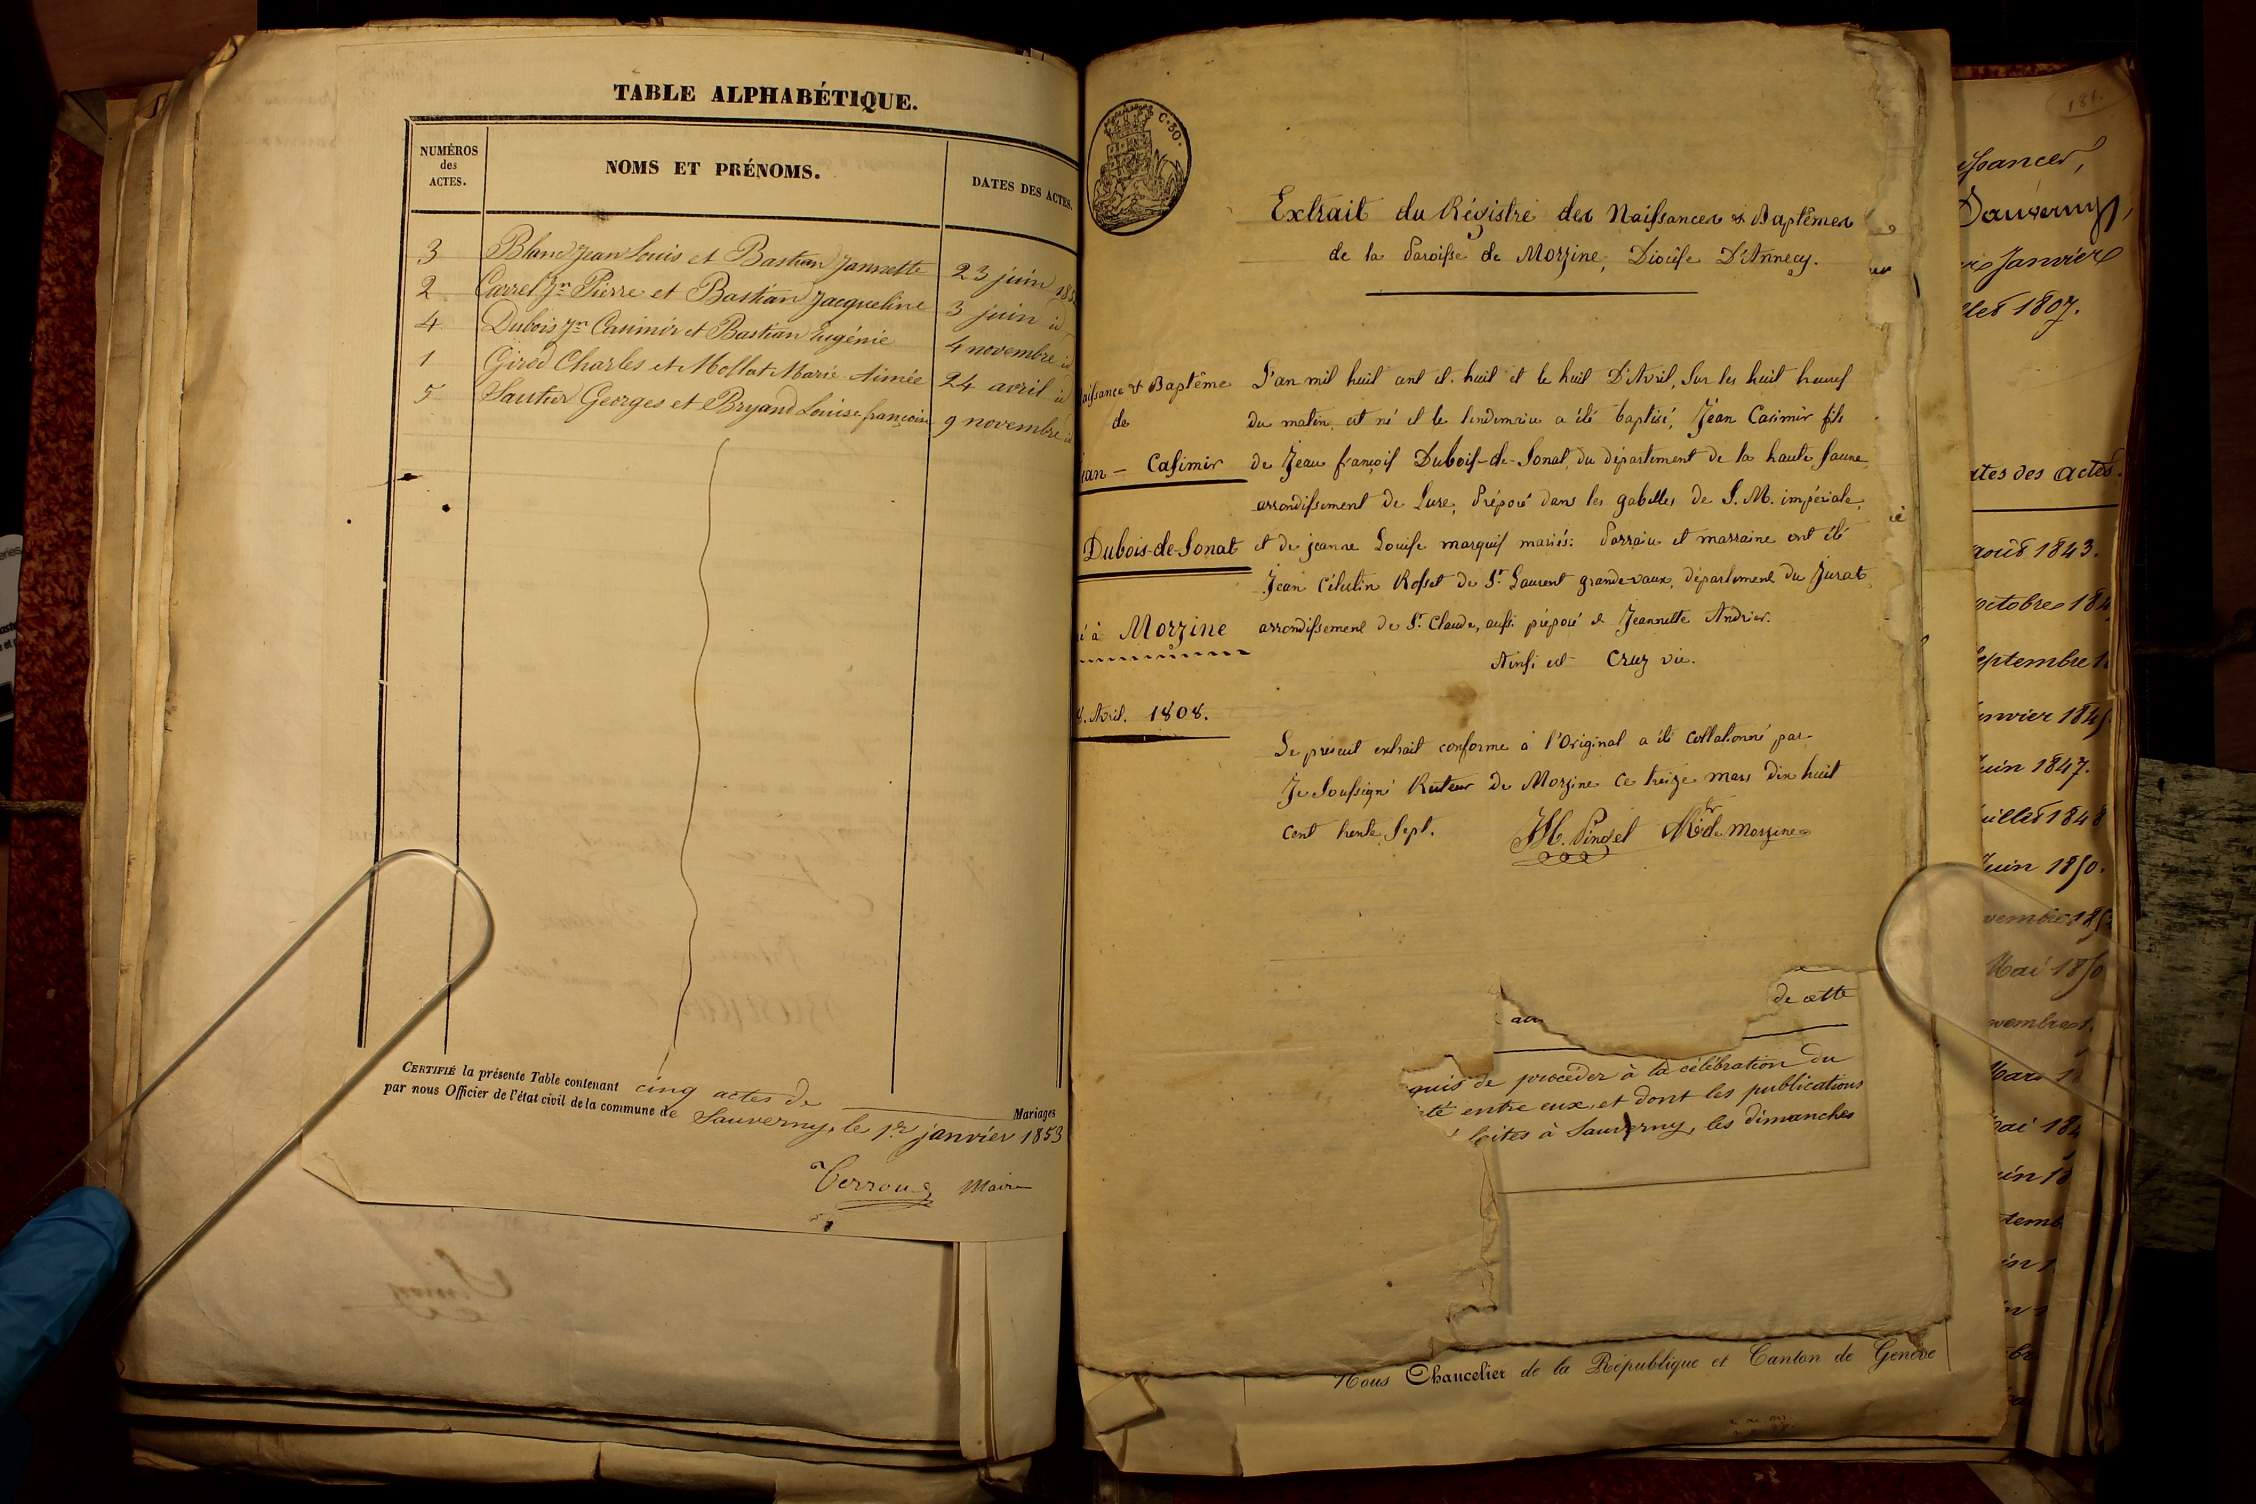 TABLE ALPHABÉTIQUE.
NUMÉROS
des
ACTES.
NOMS ET PRÉNOMS.
DATES DES ACTES.
3 Blanc Jean Louis et Bastian Jannette 23 juin 185
2 Carrel Jn Pierre et Bastian Jacqueline 3 juin id
4 Dubois Jn Casimir et Bastian Eugénie 4 novembre id
1 Girod Charles et Mossat Marie Aimée 24 avril id
5 Sautier Georges et Bryand Louise françoise 9 novembre id
CERTIFIÉ la présente Table contenant cinq actes de Mariages
par nous Officier de l'état civil de la commune de Sauverny, le 1er janvier 1853
Maire
C. 50.
Extrait du Régistre des Naissances & Baptêmes
de la Paroisse de Morzine, Diocèse D'Annecy.
aissance & Baptême
de
ean - Casimir
Dubois-de-Sonat
é à Morzine
8. Avril. 1808.
L'an mil huit cent et huit et le huit D'Avril, Sur les huit heures
du matin, est né et le lendemain a été baptisé, Jean Casimir fils
de Jean françois Dubois-de-Sonat, du département de la haute Saune,
arrondissement de Lure, Préposé dans les gabelles de S. M. impériale,
et de jeanne Louise marquis mariés: Parrain et marraine ont été
Jean Célestin Rosset de St Laurent grandevaux, département du Jurat,
arrondissement de St Claude, aussi préposé & Jeannette Andrier.
Ainsi est Cruz vic.
Le présent extrait conforme à l'Original a été Collationné par
Je Soussigné Recteur de Morzine Ce treize mars Dix huit
cent trente Sept.
JH. Pingel Rd de Morzine
de cette
au
quis de procéder à la célébration du
eté entre eux, et dont les publications
faites à Sauverny, les dimanches
Nous Chancelier de la République et Canton de Genève
181.
issances,
Sauverny,
er Janvier
llet 1807.
ates des actes.
août 1843.
octobre 184
septembre 1
anvier 184
Juin 1847.
uillet 1848
Juin 1850.
vembre 185
Mai 1850
vembre 1
Mars 1
Mai 184
uin 18
temb
in 1